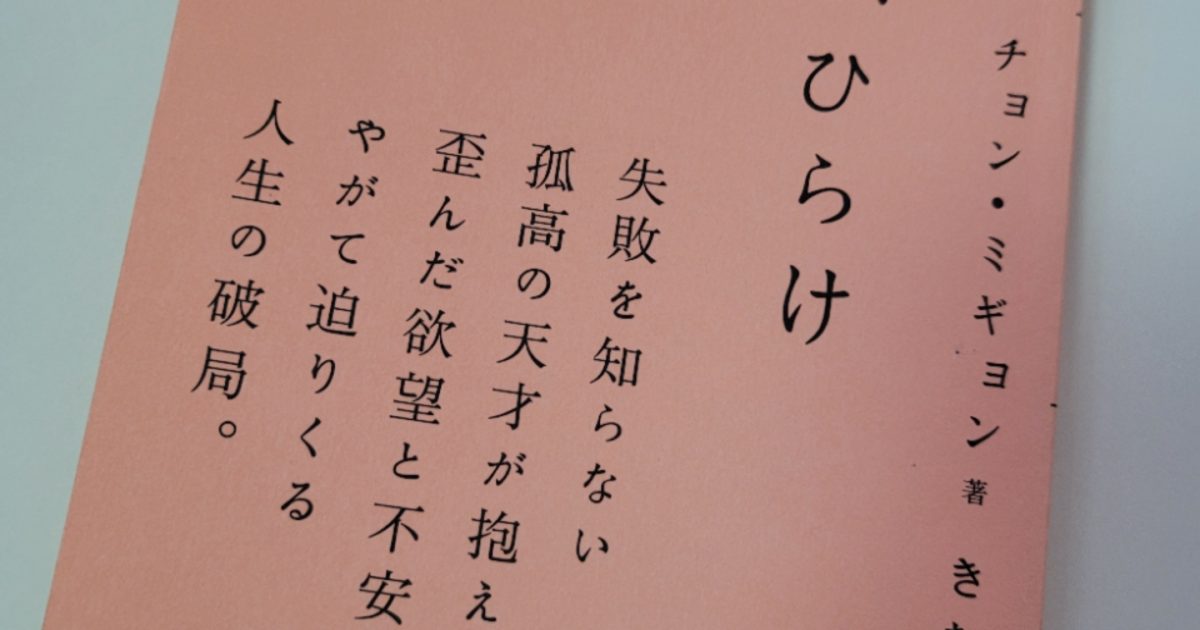 チョン・ミギョン 著 き
ひらけ
失敗を知らない
孤高の天才が抱え
歪んだ欲望と不安
やがて迫りくる
人生の破局。